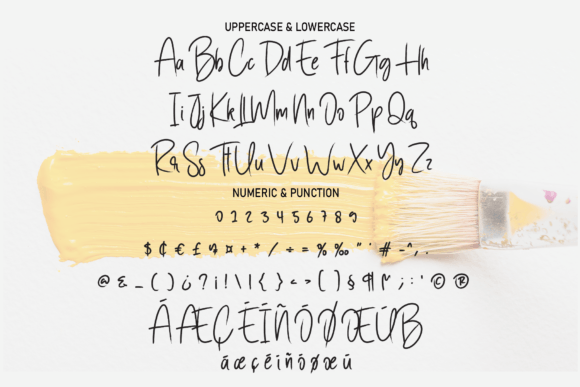 UPPERCASE & LOWERCASE
Aa Bb Cc Dd Ee Ff Gg Hh
Ii Jj Kk Ll Mm Nn Oo Pp Qq
Rr Ss Tt Uu Vv Ww Xx Yy Zz
NUMERIC & PUNCTION
0 1 2 3 4 5 6 7 8 9
$ ¢ € £ ¤ + * / ÷ = % ‰ " ° # - ^ , .
@ & _ ( ) ¿ ? ¡ ! \ | { } < > [ ] § ¶ ; : ' © ®
ÁÆÇÉÍÑÓØŒÚ
áæçéíñóøœú